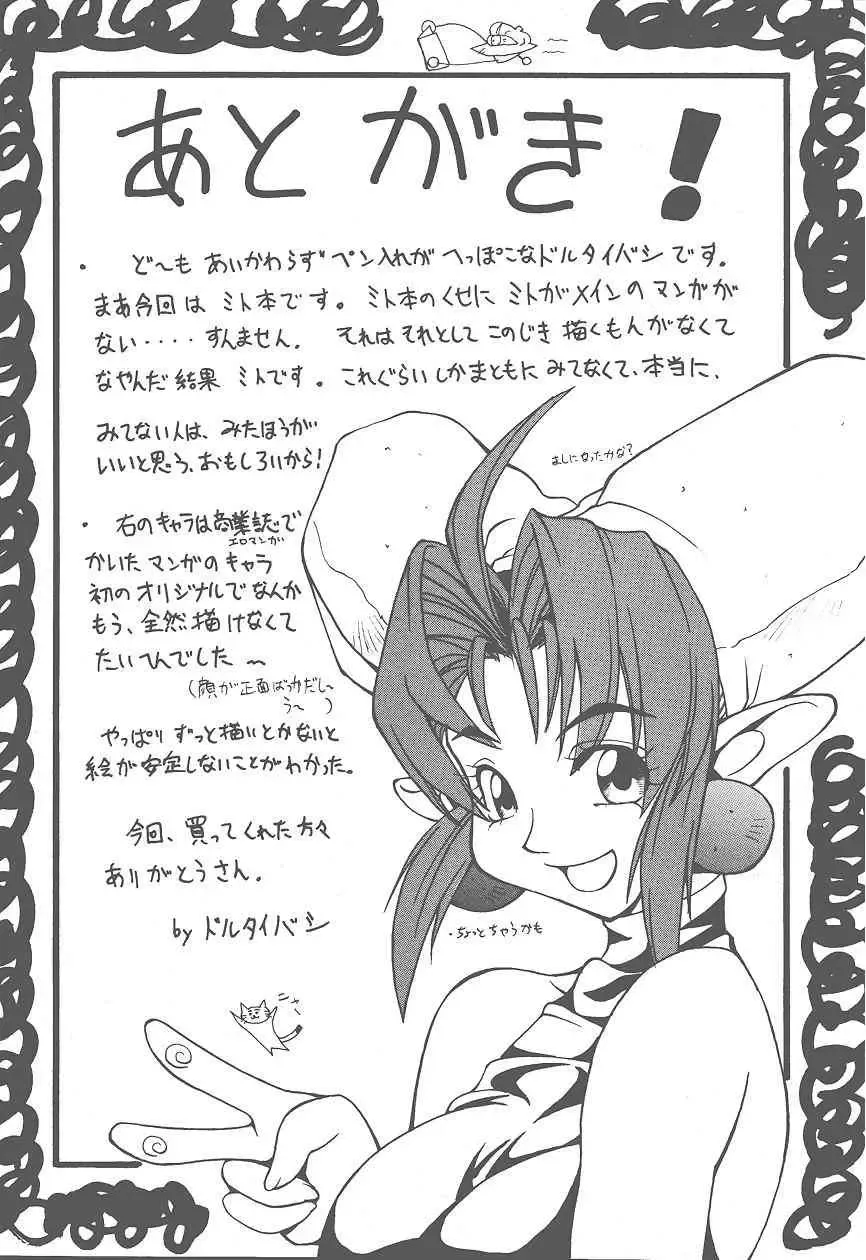 あとがき！
・ ど〜も あいかわらず ペン入れが へっぽこな ドルタイバシ です。
まあ今回は ミト本です。ミト本のくせに ミトがメインの マンガが
ない・・・・すんません。 それはそれとして このじき 描くもんがなくて
なやんだ 結果 ミトです。これぐらいしかまともに みてなくて、本当に、
みてない人は、みたほうが
いいと思う、おもしろいから！
ましになったかな？
・ 右のキャラは商業誌で
エロマンガ
かいた マンガのキャラ
初のオリジナルでなんか
もう、全然描けなくて
たいへんでした〜
（顔が正面ばっかだし〜
う〜 ）
やっぱり ずっと描いとかないと
絵が安定しないことがわかった。
今回、買ってくれた方々
ありがとうさん。
by ドルタイバシ
・ちょっとちゃうかも
ニャー